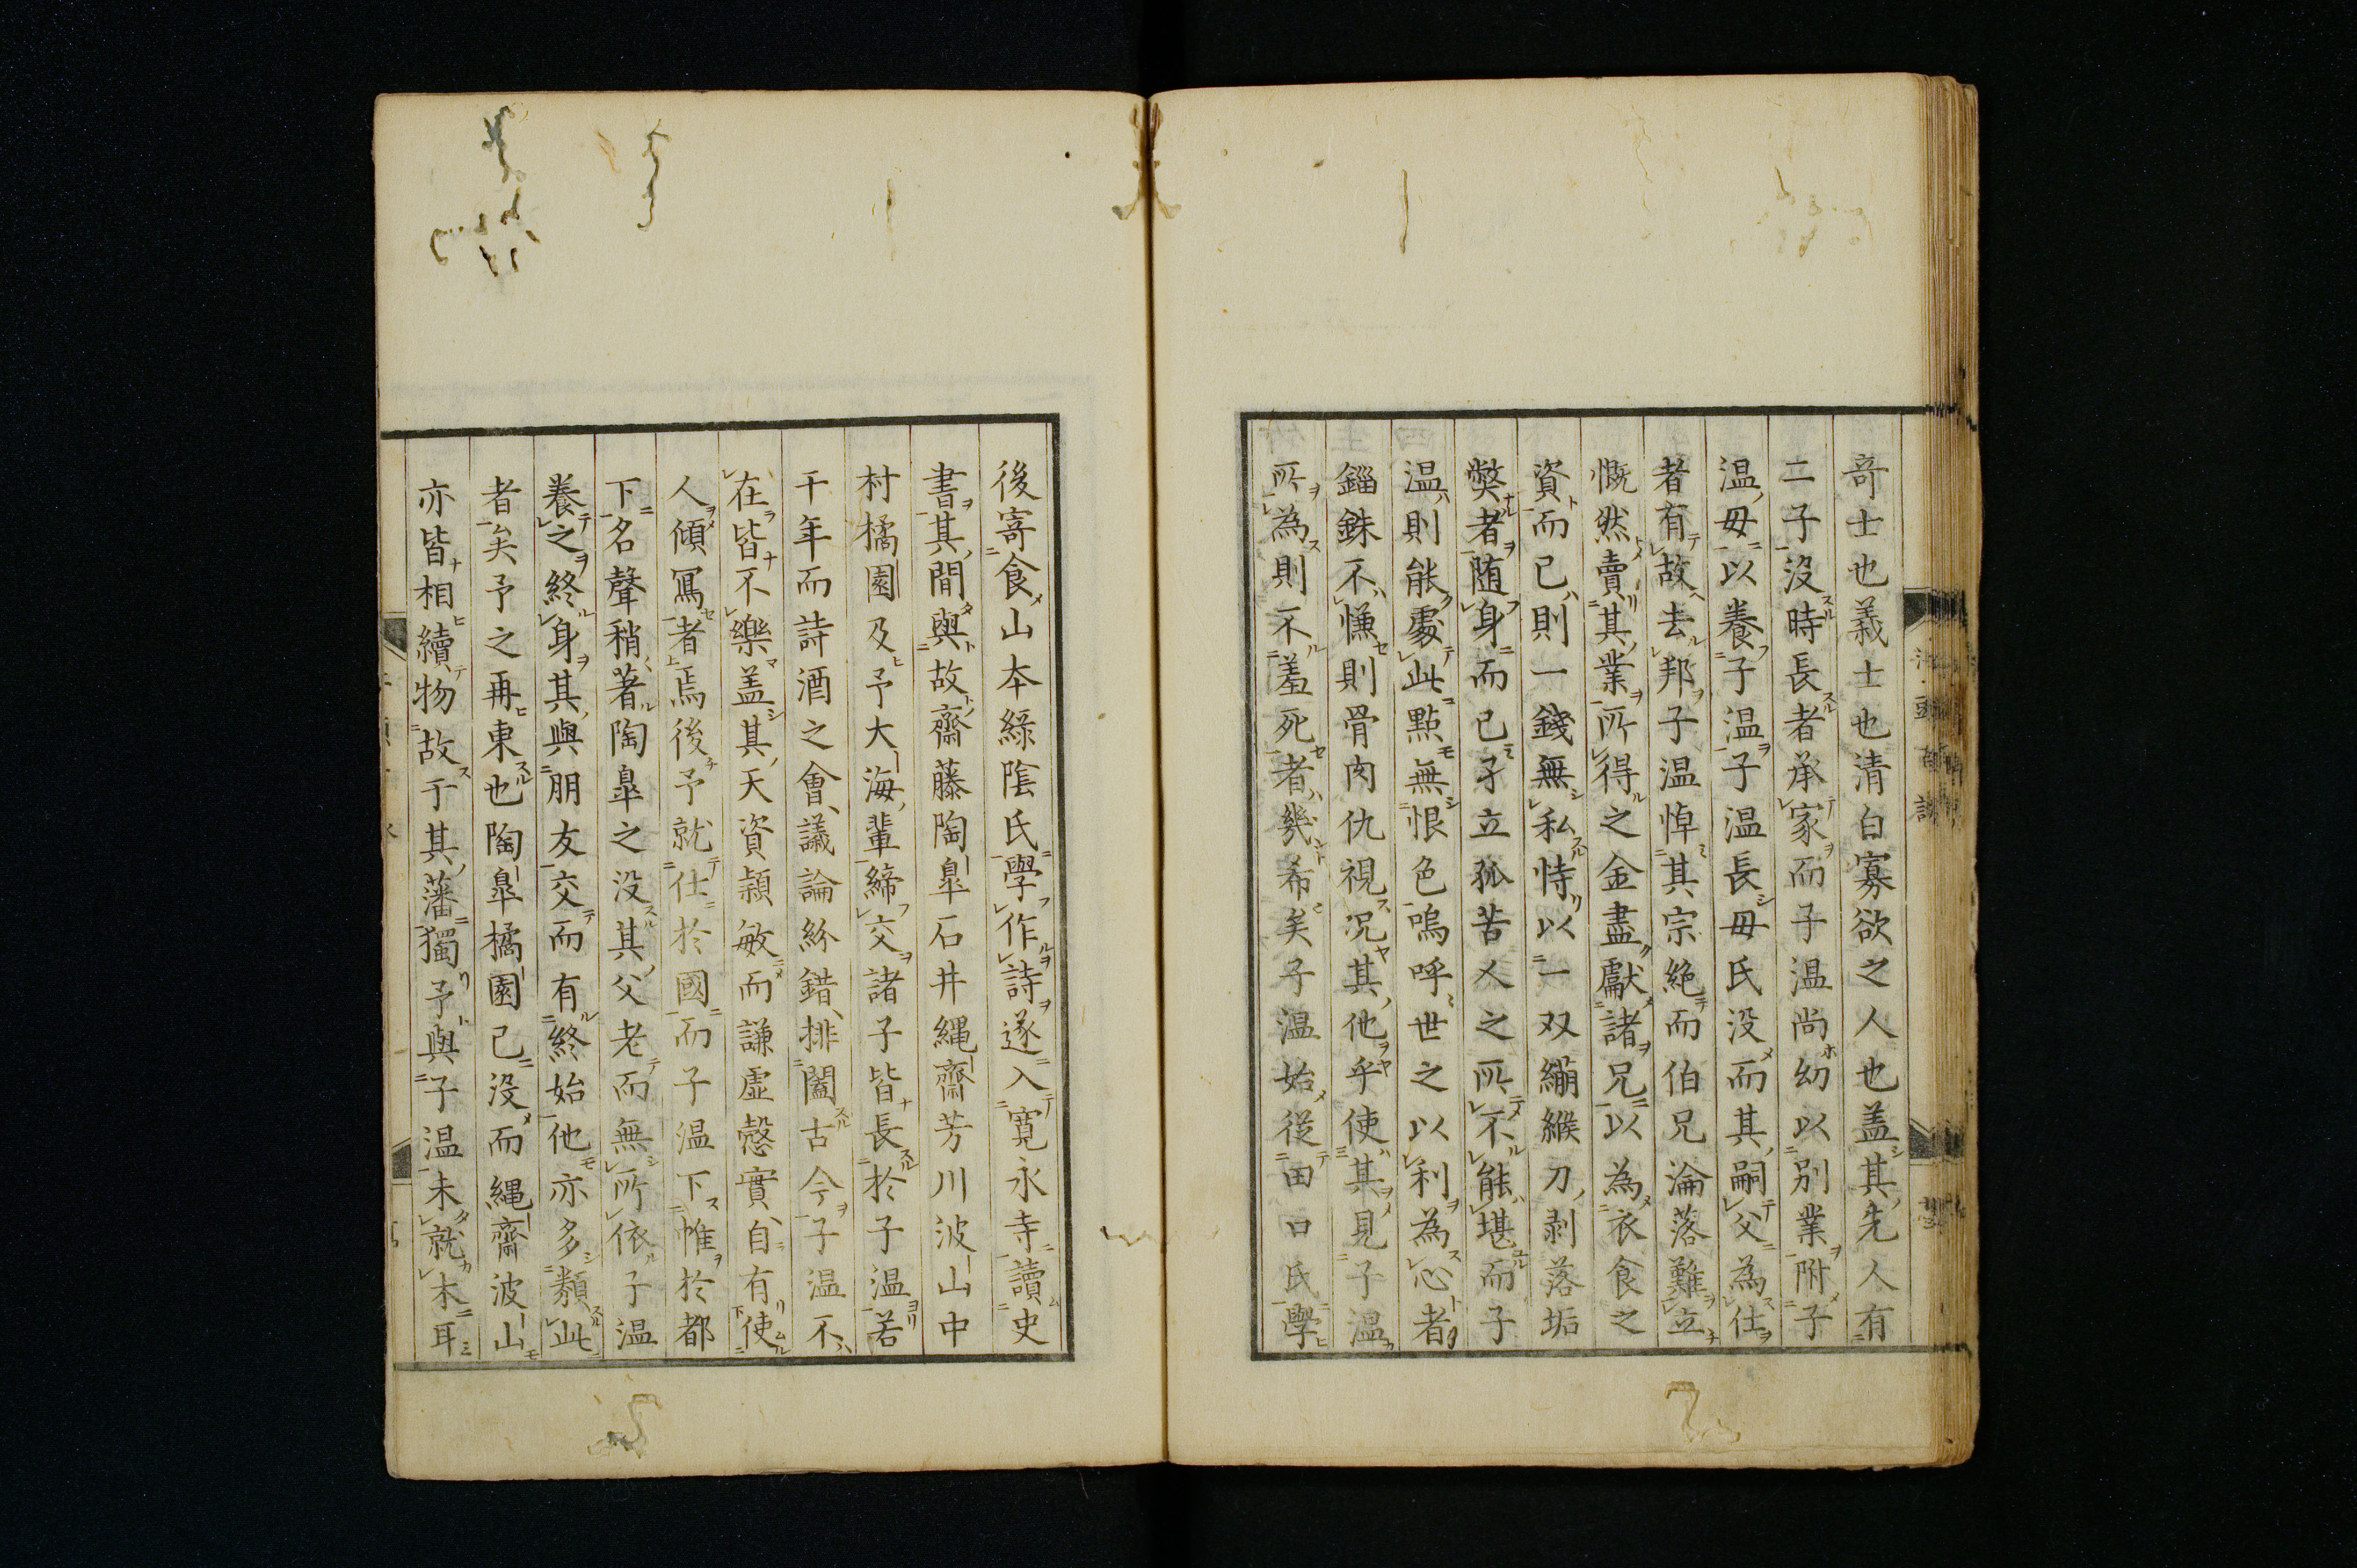 奇士也義士也清白寡欲之人也盖其先人有
二子没時長者承家而子温尚幼以別業附子
温毋以養子温子温長毋氏没而其嗣父為仕
者有故去邦子温悼其宗絶而伯兄淪落難立
慨然賣其業所得之金盡獻諸兄以為衣食之
資而已則一錢無私恃以一双緔緱刀剥落垢
弊者随身而已孑立孤苦人之所不能堪而子
温則能處此點無恨色嗚呼世之以利為心者
錙銖不慊則骨肉仇視况其他乎使其見子温
所為則不羞死者幾希矣子温始從田口氏學
後寄食山本緑陰氏學作詩遂入寛永寺讀史
書其間與故齋藤陶皐石井縄齋芳川波山中
村橘園及予大海輩締交諸子皆長於子温若
干年而詩酒之會議論紛錯排闔古今子温不
在皆不樂盖其天資頴敏而謙虚慤實自有使
人傾寫者焉後予就仕於國而子温下帷於都
下名聲稍著陶皐之没其父老而無所依子温
養之終身其與朋友交而有終始他亦多類此
者矣予之再東也陶皐橘園已没而縄齋波山
亦皆相續物故于其藩獨予與子温未就木耳